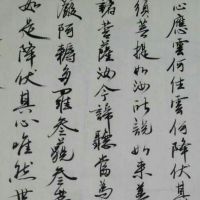 心應雲何住雲何降伏其
須菩提如汝所說如來善
諸菩薩汝今諦聽當為
發阿耨多羅參藐參菩
如是降伏其心唯然世